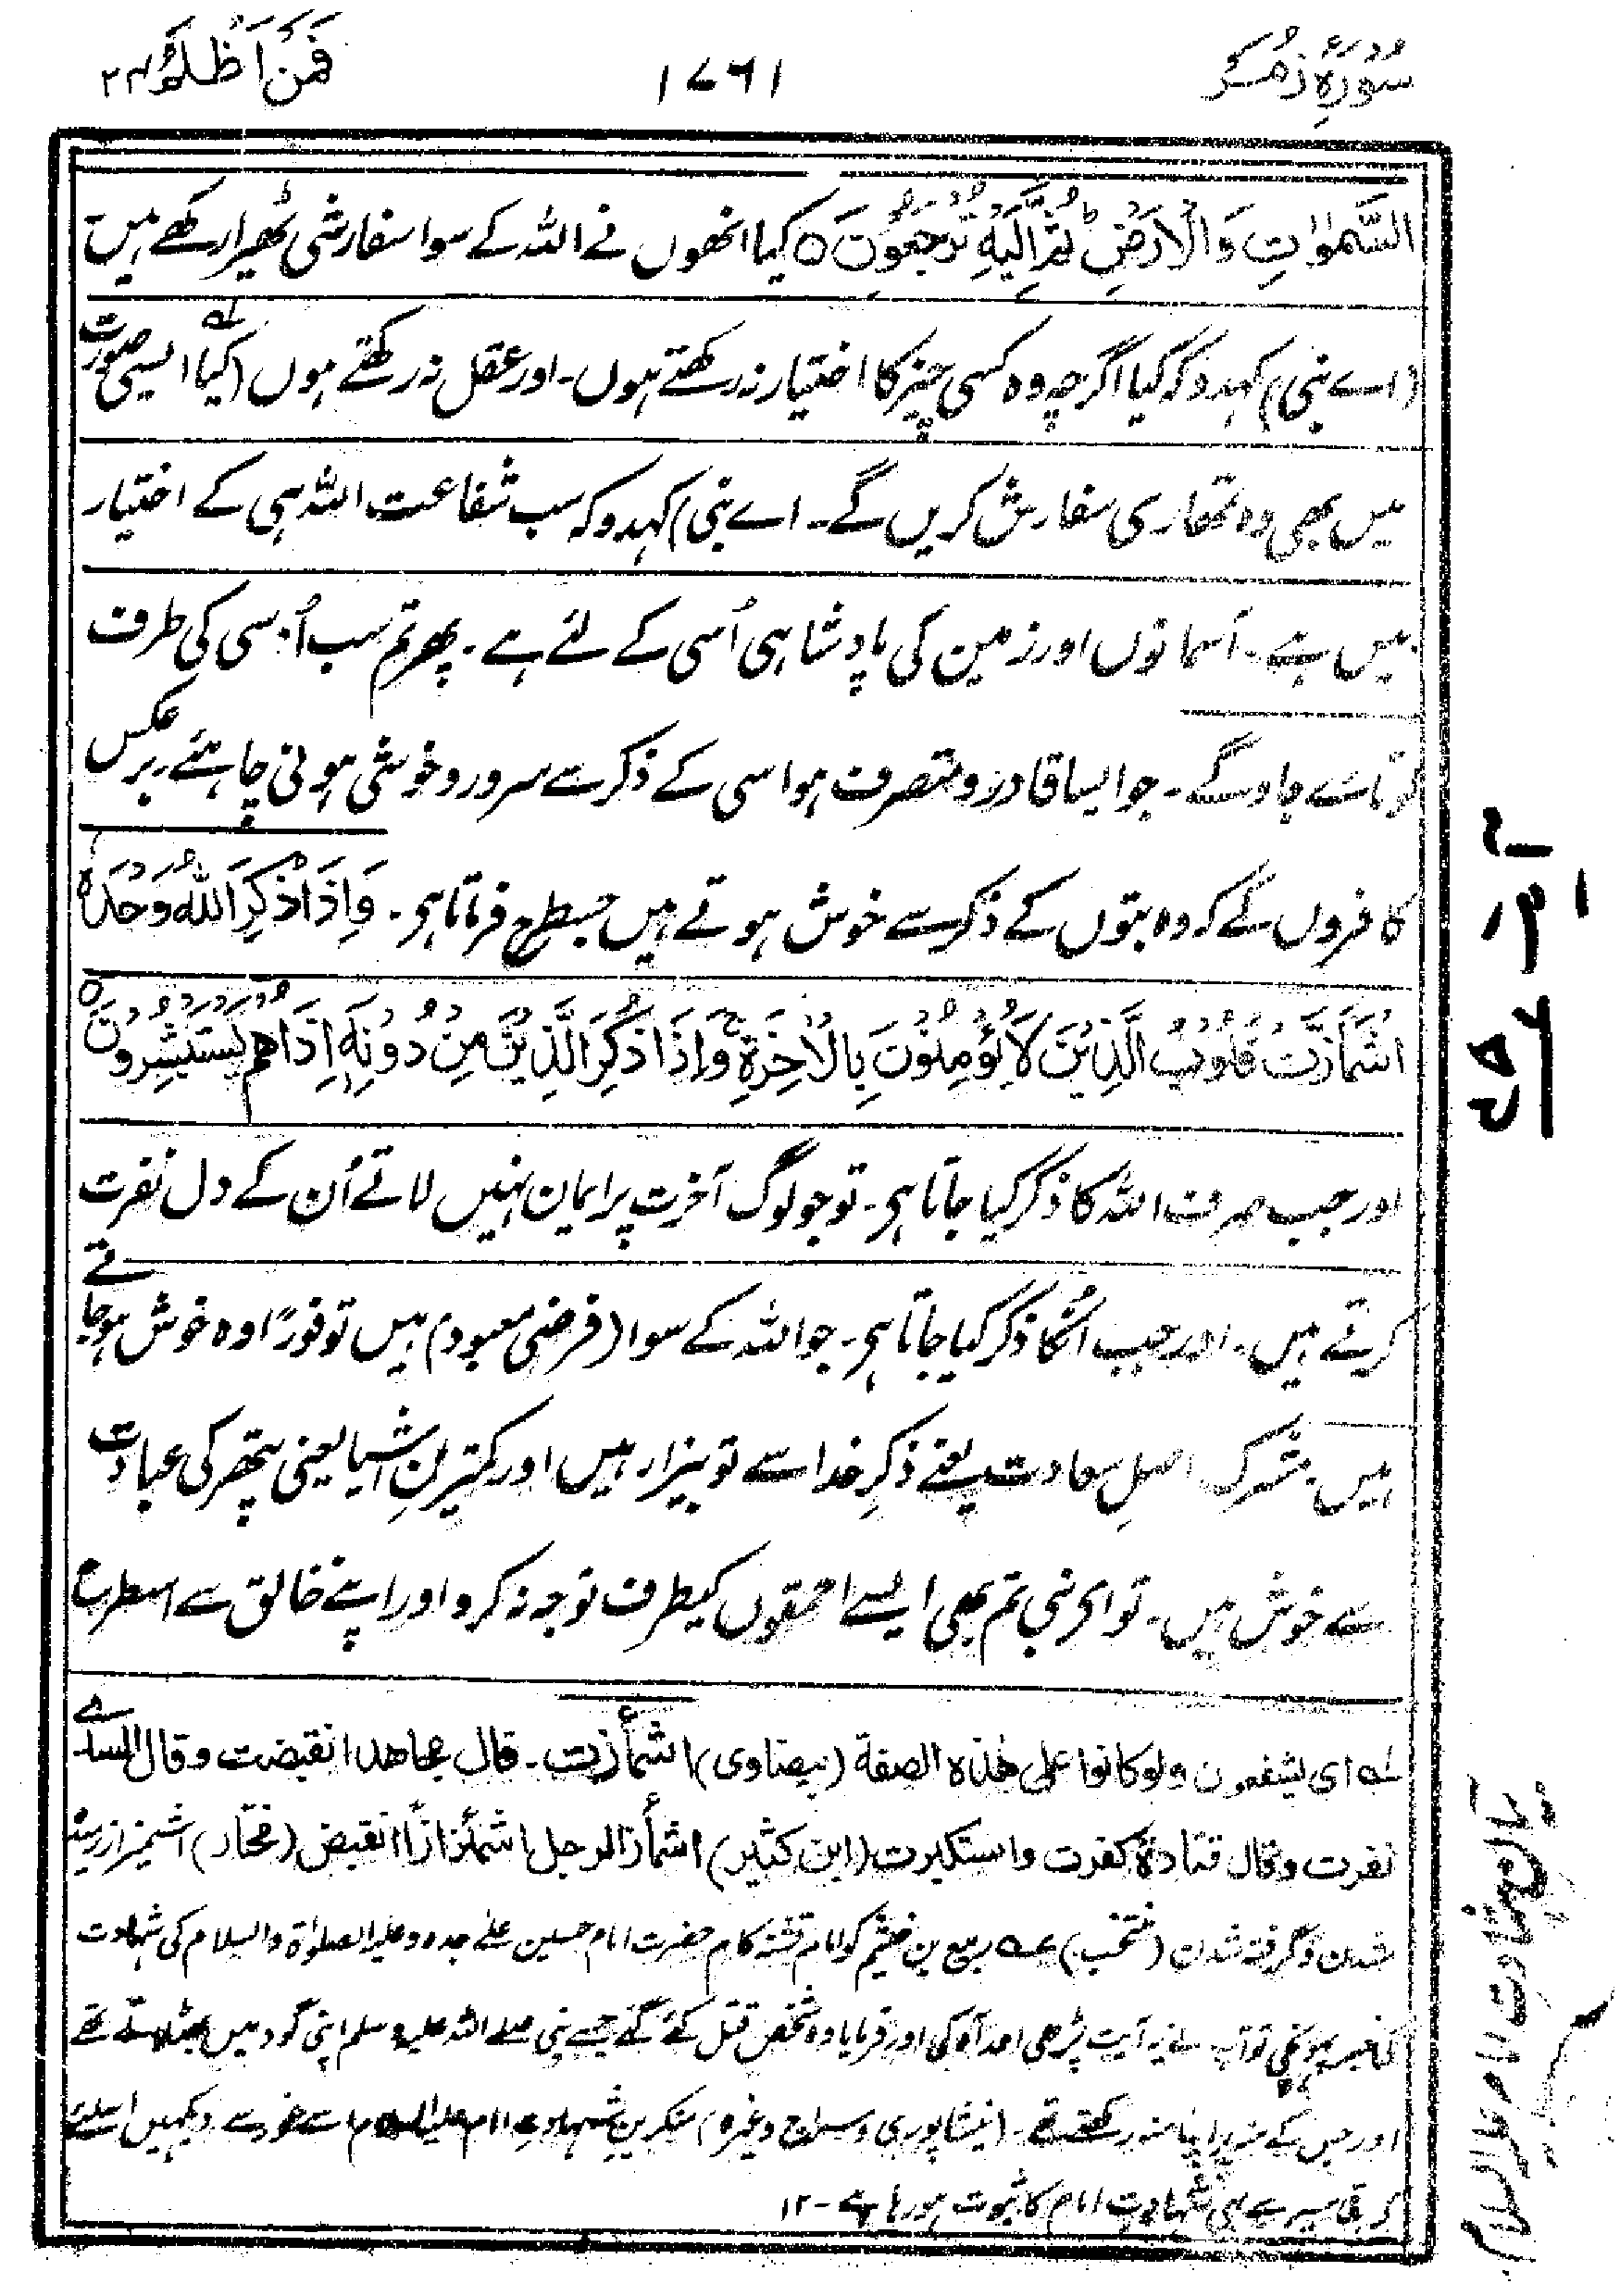 سُوْرَۃُ زُمَر
۱۷۶۱
فَمَنْ اَظْلَمُ ۲۴
السَّمٰوٰتِ وَالْاَرْضِ ؕ ثُمَّ اِلَیْہِ تُرْجَعُوْنَ ○ کیا انھوں نے اللہ کے سوا سفارشی ٹھیرا رکھے ہیں
(اے نبی) کہدو کہ کیا اگرچہ وہ کسی چیز کا اختیار نہ رکھتے ہوں۔ اور عقل نہ رکھتے ہوں (کیا ایسی صورت
میں بھی وہ تمھاری سفارش کریں گے۔ اے نبی) کہدو کہ سب شفاعت اللہ ہی کے اختیار
میں ہے۔ آسمانوں اور زمین کی پادشاہی اُسی کے لئے ہے۔ پھر تم سب اُسی کی طرف
لوٹائے جاوگے۔ جو ایسا قادر و متصرف ہو اسی کے ذکر سے سرور و خوشی ہونی چاہئے۔ برعکس
کافروں کے کہ وہ بتوں کے ذکر سے خوش ہوتے ہیں جسطرح فرماتا ہی۔ وَاِذَا ذُکِرَ اللہُ وَحْدَہُ
اشْمَاَزَّتْ قُلُوْبُ الَّذِیْنَ لَا یُؤْمِنُوْنَ بِالْاٰخِرَۃِ ۚ وَاِذَا ذُکِرَ الَّذِیْنَ مِنْ دُوْنِہٖۤ اِذَا ھُمْ یَسْتَبْشِرُوْنَ ○
اور جب صرف اللہ کا ذکر کیا جاتا ہی۔ تو جو لوگ آخرت پر ایمان نہیں لاتے اُن کے دل نفرت
کرتے ہیں۔ اور جب اُنکا ذکر کیا جاتا ہی۔ جو اللہ کے سوا (فرضی معبود) ہیں تو فورًا وہ خوش ہوجاتے
ہیں۔ مشرک اصلِ سعادت یعنے ذکرِ خدا سے تو بیزار ہیں اور کمترینِ اشیا یعنی پتھر کی عبادت
سے خوش ہیں۔ تو ای نبی تم بھی ایسے احمقوں کیطرف توجہ نہ کرو اور اپنے خالق سے اسطرح
لہ ای یشفعون ولو کانوا علی ھٰذہ الصفۃ (بیضاوی) اشمأزت۔ قال مجاھد انقبضت وقال السدے
نفرت وقال قتادۃ کفرت واستکبرت (ابن کثیر) اشمأز الرجل اشمئزازًا انقبض (مختار) اشمیزاز رمیدہ
شدن و گرفتہ شدن (منتخب) ربیع بن خیثم کو امام تشنہ کام حضرت امام حسین علی جدہ و علیہ الصلوٰۃ والسلام کی شہادت
کی خبر پہونچی تو آپ نے یہ آیت پڑھی اور آہ کی اور فرمایا وہ شخص قتل کئے گئے جسے نبی صلے اللہ علیہ وسلم اپنی گود میں بٹھلاتے تھے
اور جس کے منہ پر اپنا منہ رکھتے تھے۔ (نیشاپوری و سراج وغیرہ) منکرینِ شہادتِ امام علیہ السلام اسے غور سے دیکہیں اسلئے
کہ تفاسیر سے بھی شہادتِ امام کا ثبوت ہو رہا ہے۔ ۱۲